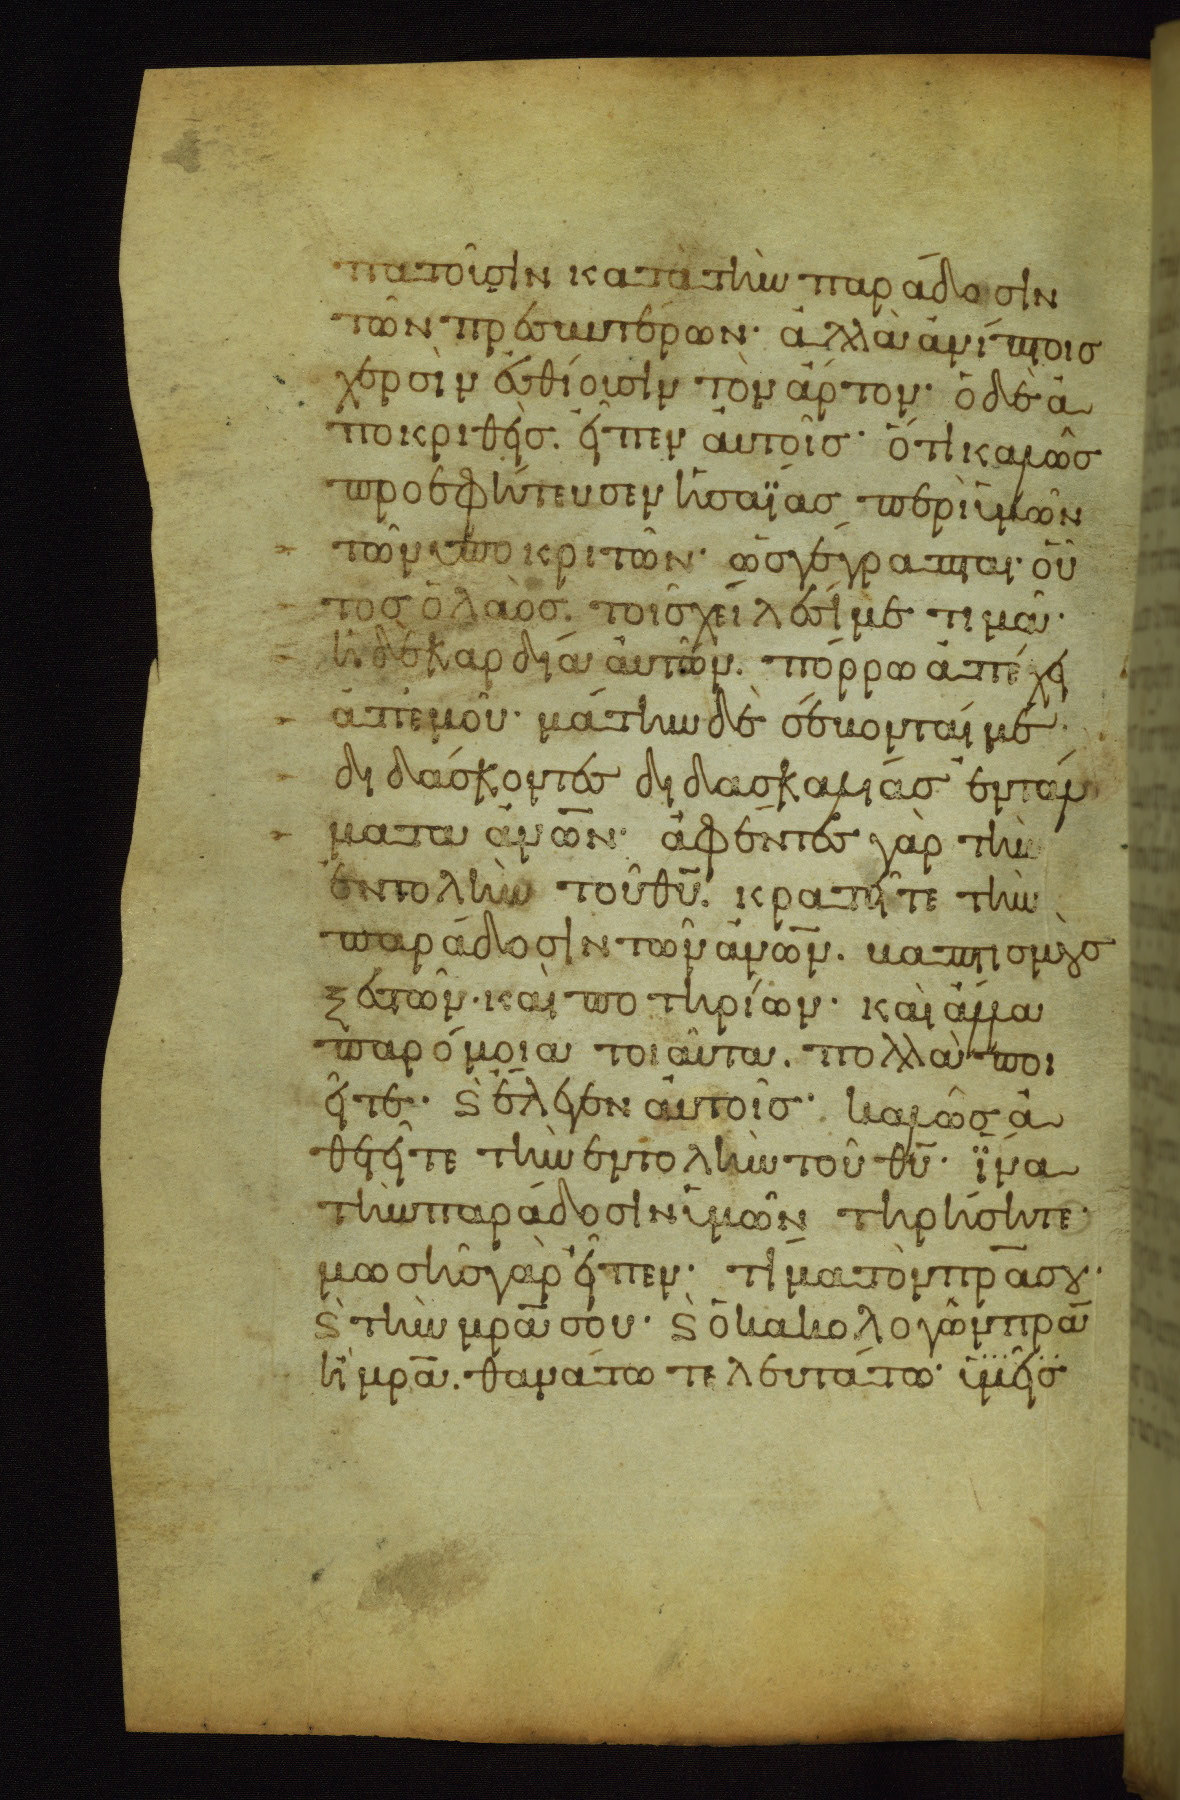 πατοῦσιν κατὰ τὴν παράδοσιν
τῶν πρεσβυτέρων· ἀλλὰ ἀνίπτοις
χερσὶν ἐσθίουσιν τὸν ἄρτον· ὁ δὲ ἀ
ποκριθεὶς. εἶπεν αὐτοῖς· ὅτι καλῶς
προεφήτευσεν ἡσαΐας περὶ ὑμῶν
τῶν ὑποκριτῶν· ὡς γέγραπται· οὗ
τος ὁ λαὸς. τοῖς χείλεσί με τιμᾶ·
ἡ δὲ καρδία αὐτῶν. πόρρω ἀπέχει
ἀπ' ἐμοῦ· μάτην δὲ σέβονταί με·
διδάσκοντες διδασκαλίας ἐντάλ
ματα ἀνω̅ν· ἀφέντες γὰρ τὴν
ἐντολὴν τοῦ θυ̅. κρατεῖτε τὴν
παράδοσιν τῶν ἀνω̅ν. βαπτισμοὺς
ξεστῶν· καὶ ποτηρίων· καὶ ἄλλα
παρόμοια τοιαῦτα. πολλὰ ποι
εῖτε· ϛ̀ ἔλεγεν αὐτοῖς· καλῶς ἀ
θεῖτε τὴν ἐντολὴν τοῦ θυ̅· ἵ̈να
τὴν παράδοσιν ὑμῶν τηρήσητε·
μωσῆς γὰρ εἶπεν· τίμα τὸν πρα̅ σου·
ϛ̀ τὴν μρα̅ σου· ϛ̀ ὁ κακολογῶν πρα̅
ἢ μρα̅. θανάτω τελευτάτω· ὑμεῖς